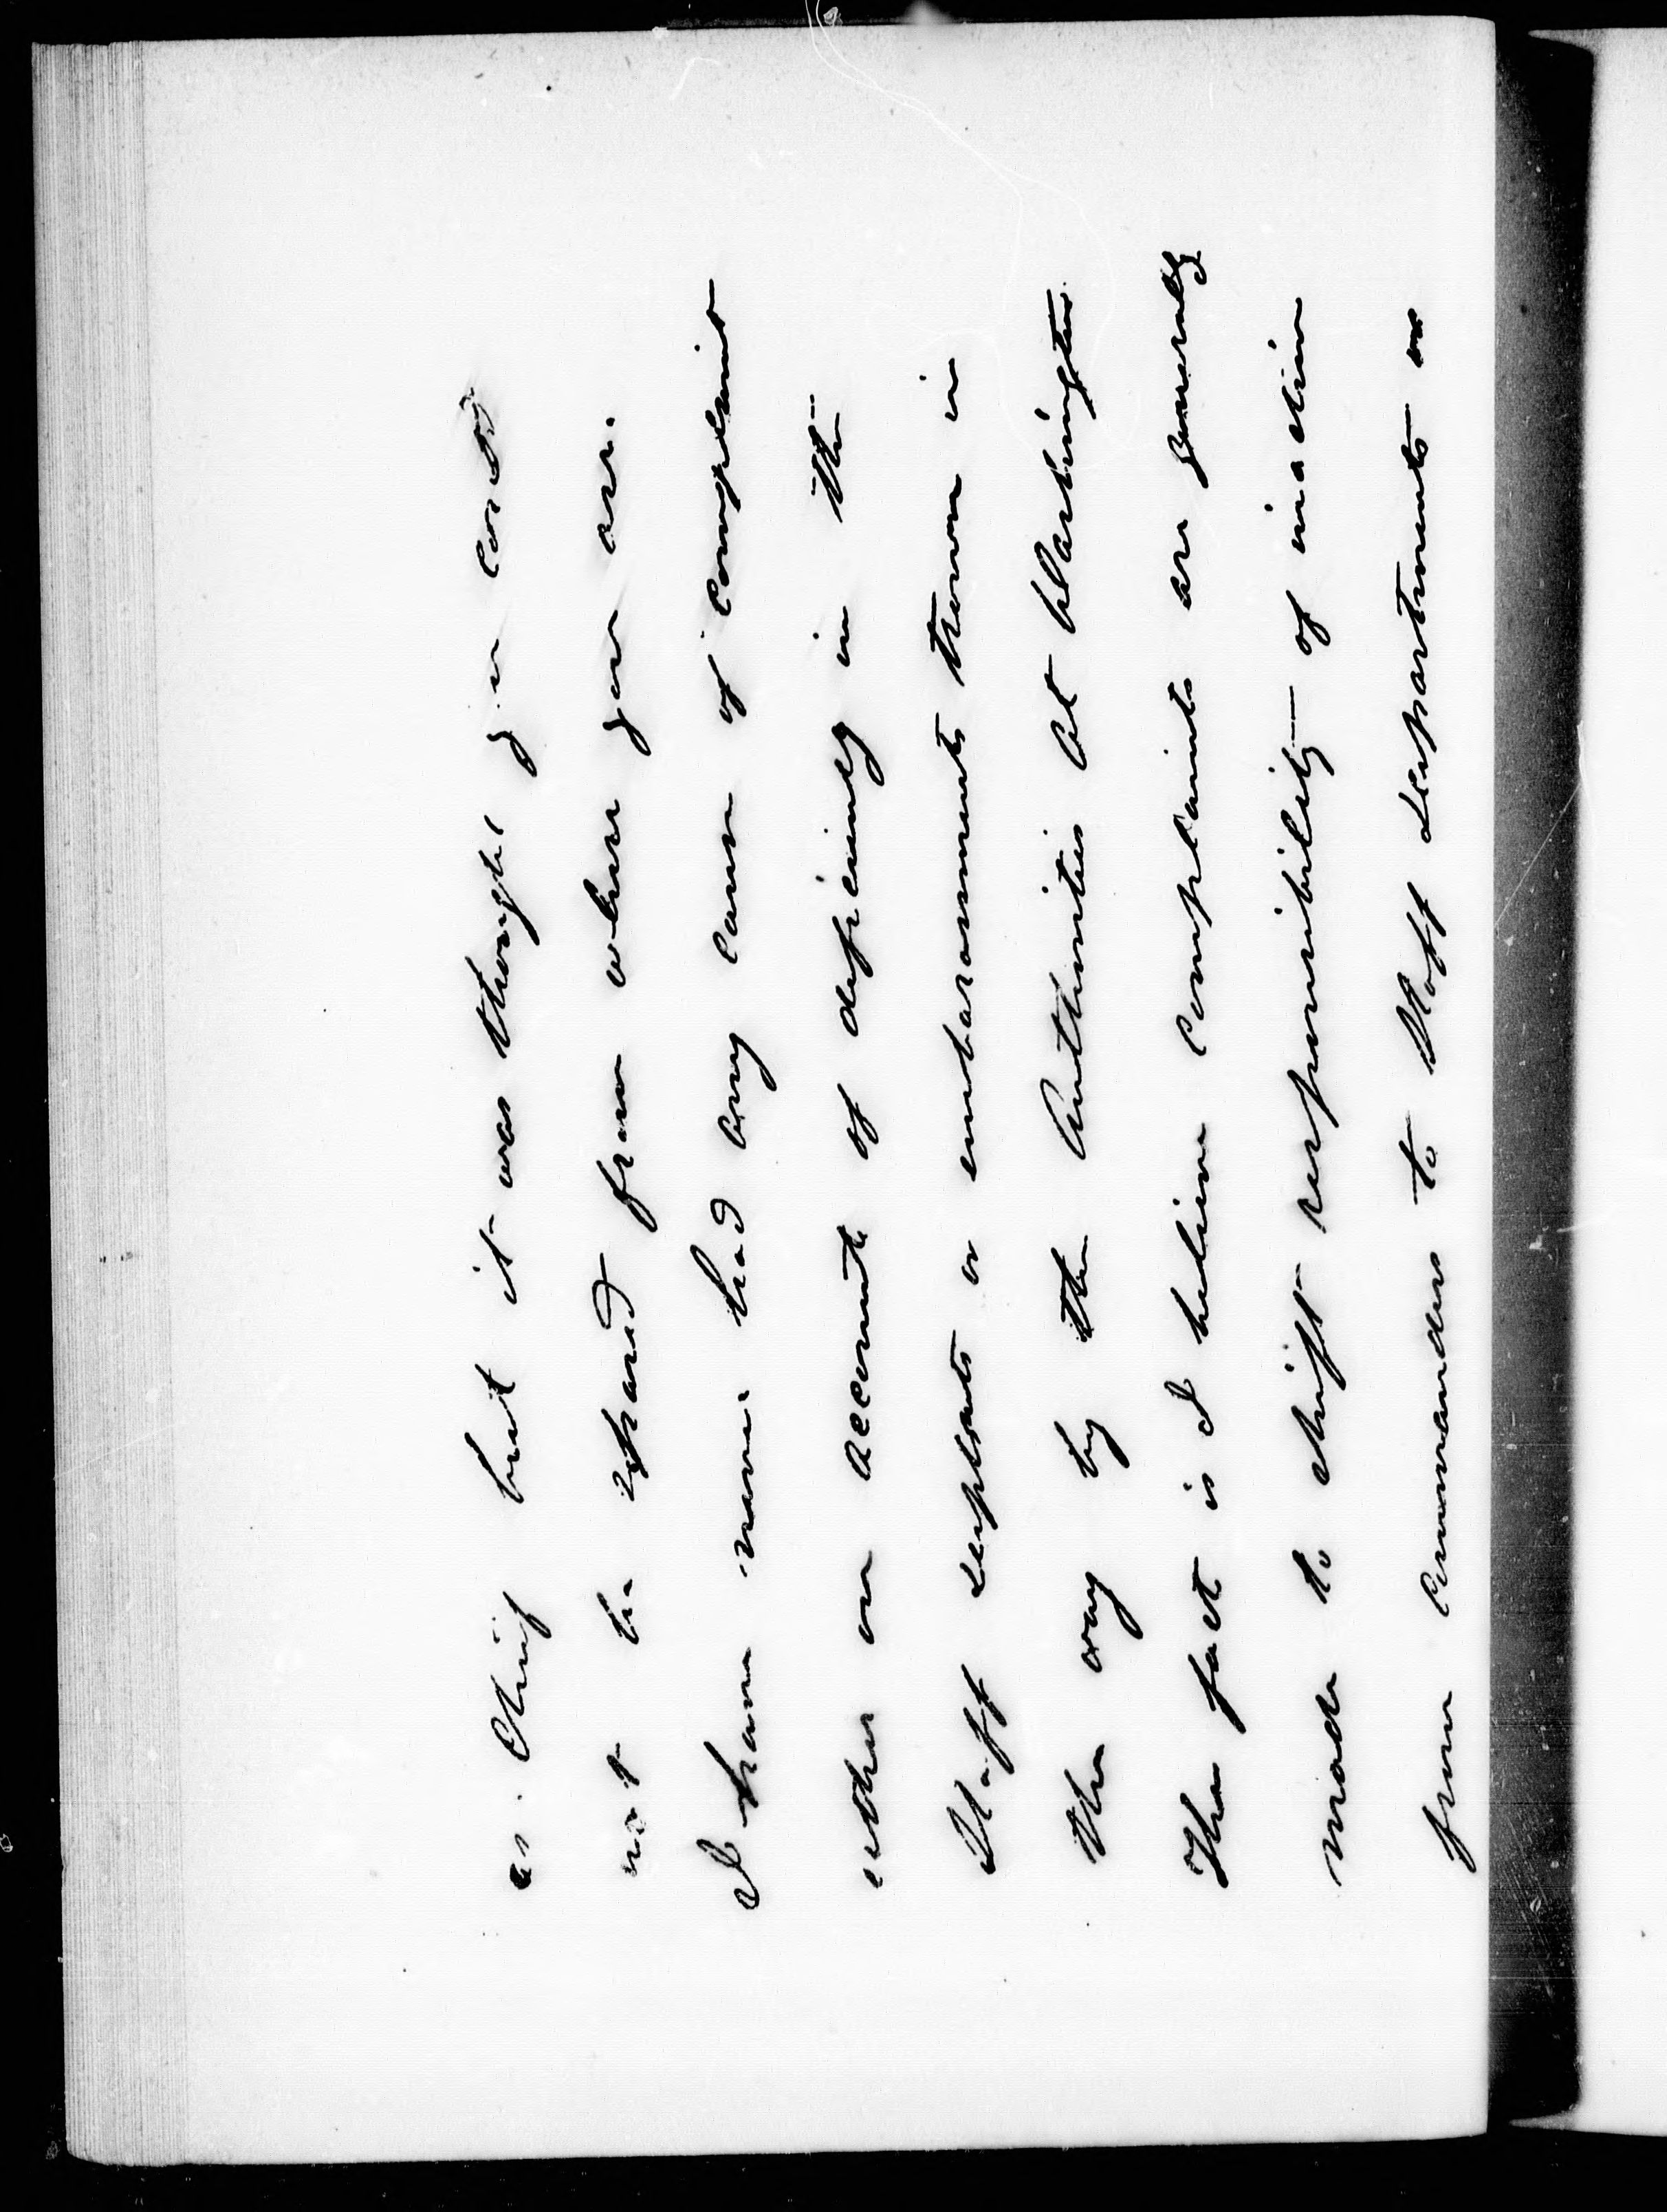 as Chief but it was thought you could
not be spared from where you are.
I have never had any cause of complaint
either on account of deficiency in the
Staff Deptmts or embarassments thrown in
the way by the Authorities at Washington.
The fact is I believe complaints are generally
made to shift responsibility of inaction
from Commanders to Staff Departments or